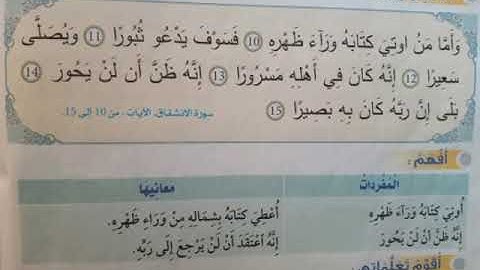 وَأَمَّا مَنُ اوتِيَ كِتَابَهُ وَرَآءَ ظَهْرِهِ 10 فَسَوْفَ يَدْعُو ثُبُورًا 11 وَيُصَلَّى
سَعِيرًا 12 إِنَّهُ كَانَ فِي أَهْلِهِ مَسْرُورًا 13 إِنَّهُ ظَنَّ أَن لَنْ يَحُورَ 14
بَلَى إِنَّ رَبَّهُ كَانَ بِهِ بَصِيرًا 15 سورة الانشقاق، الآيات: من 10 إلى 15.
أفهم:
الْمُفْرَدَاتُ مَعَانِيهَا
أُوتِيَ كِتَابَهُ وَرَآءَ ظَهْرِهِ أُعْطِيَ كِتَابَهُ بِشِمَالِهِ مِنْ وَرَاءِ ظَهْرِهِ.
إِنَّهُ ظَنَّ أَنْ لَنْ يَحُورَ إِنَّهُ اعْتَقَدَ أَنْ لَنْ يَرْجِعَ إِلَى رَبِّهِ.
أقوّم تعلّماتي